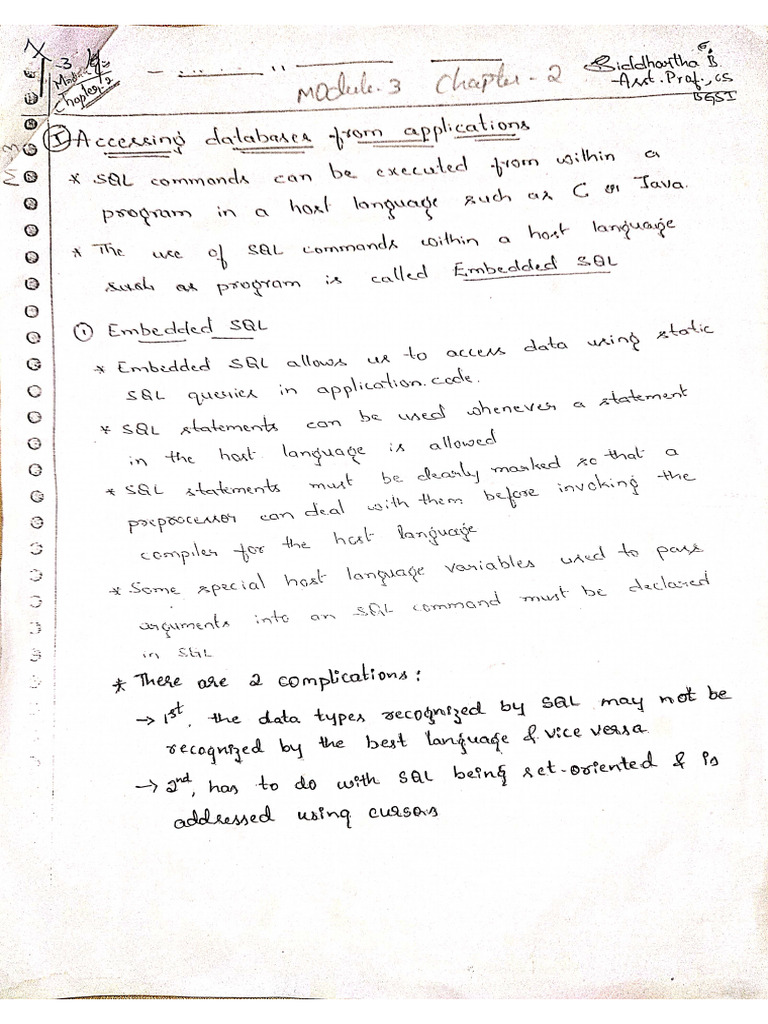 Module-3 Chapter-2
Siddhartha B.
-Asst. Prof., CS
BGSI
-3
Module
Chapter-2
M-3
I Accessing databases from applications
* SQL commands can be executed from within a
program in a host language such as C or Java.
* The use of SQL commands within a host language
such as program is called Embedded SQL
① Embedded SQL
* Embedded SQL allows us to access data using static
SQL queries in application code.
* SQL statements can be used whenever a statement
in the host language is allowed
* SQL statements must be clearly marked so that a
preprocessor can deal with them before invoking the
compiler for the host language
* Some special host language variables used to pass
arguments into an SQL command must be declared
in SQL
* There are 2 complications:
→ 1st, the data types recognized by SQL may not be
recognized by the best language & vice versa
→ 2nd, has to do with SQL being set-oriented & is
addressed using cursors